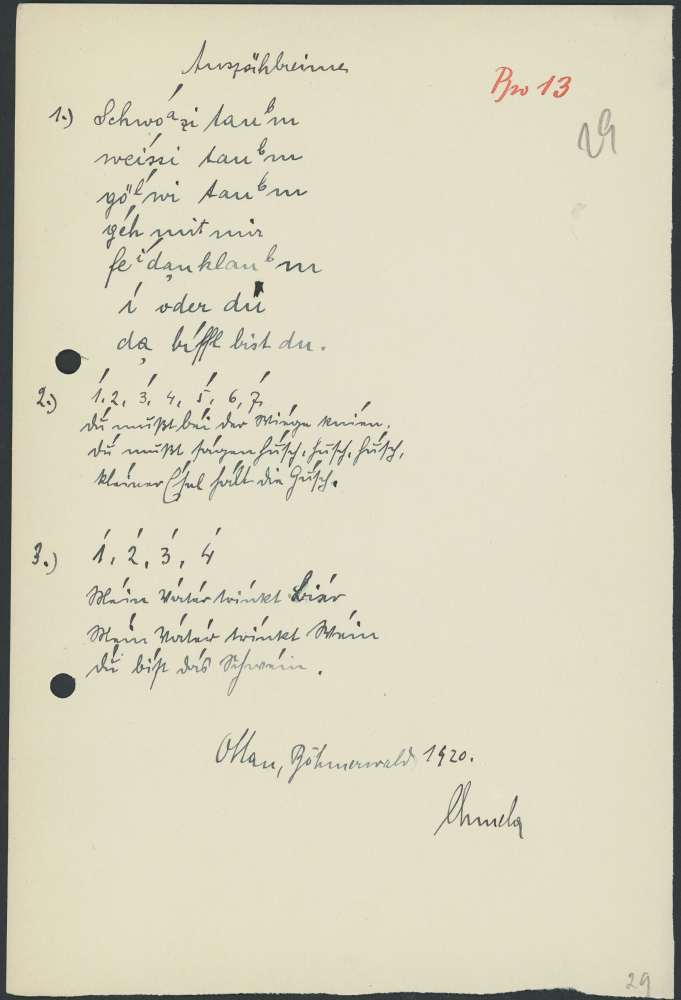 Auszählreime
Bw 13
29
1.) Schwoázi taubm
weissi taubm
gölwi taubm
géh mit mir
feidauklaubm
í oder dú
da biffl bist du.
2.) 1, 2, 3, 4, 5, 6, 7,
du mußt bei der Wiege knien.
du mußt sagen husch, husch, husch,
kleiner Esel halt die Gusch.
3.) 1, 2, 3, 4
Mein Vater trinkt Bier
Mein Vater trinkt Wein
du bist das Schwein.
Ottau, Böhmerwald 1920.
Chmela
29